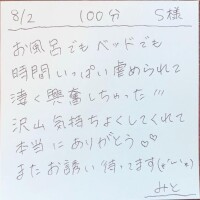 8/2 100分 S様
お風呂でもベッドでも
時間いっぱい虐められて
凄く興奮しちゃった!!!
沢山気持ちよくしてくれて
本当にありがとう♡♡
またお誘い待ってます(*´꒳`*)
みと